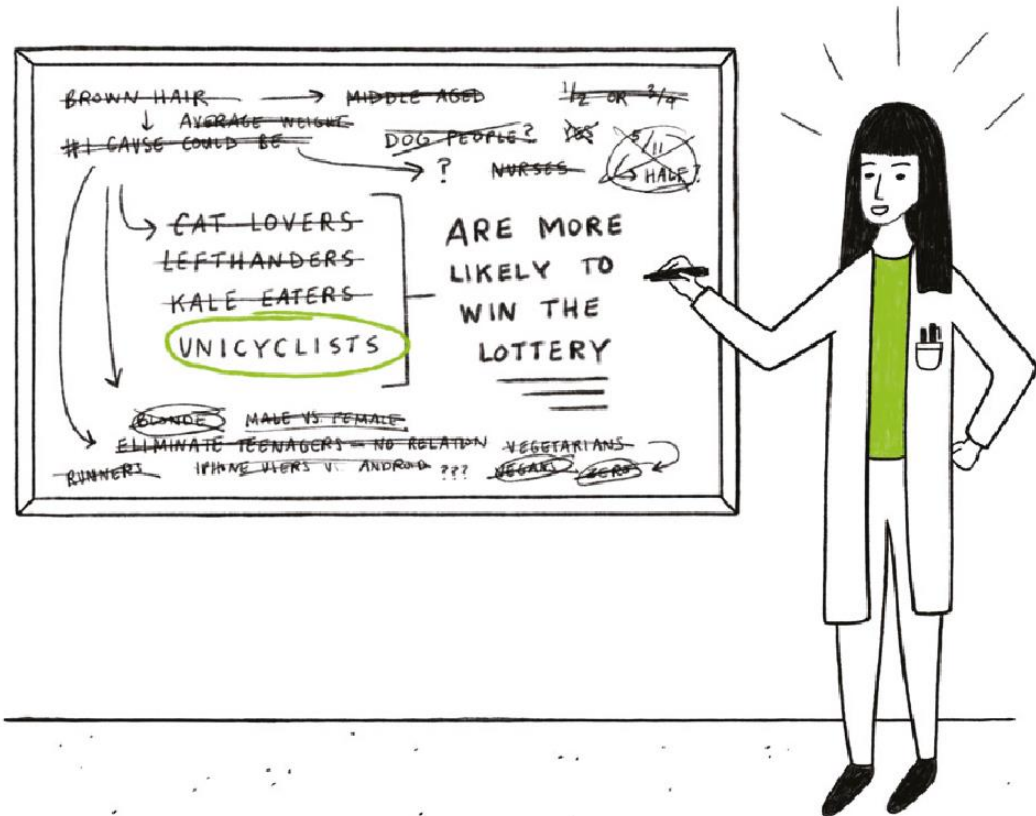 BROWN HAIR → MIDDLE AGED 1/2 OR 3/4
↓ AVERAGE WEIGHT
#1 CAUSE COULD BE DOG PEOPLE? YES 5/11
? NURSES → HALF?
CAT LOVERS
LEFTHANDERS
KALE EATERS
UNICYCLISTS
ARE MORE
LIKELY TO
WIN THE
LOTTERY
BLONDE MALE VS. FEMALE
ELIMINATE TEENAGERS — NO RELATION VEGETARIANS
RUNNERS IPHONE USERS V. ANDROID ??? VEGANS ZERO